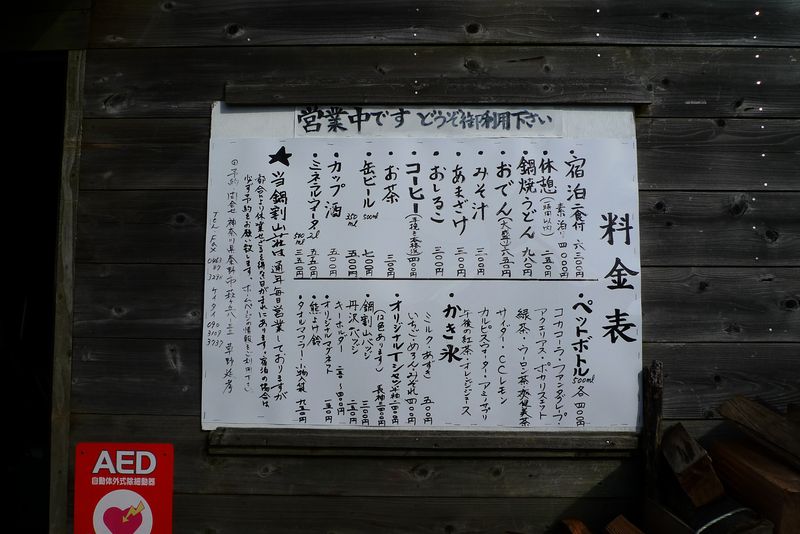 営業中です どうぞ御利用下さい
料金表
・宿泊(食付 六三〇〇円
素泊り 四〇〇〇円
・休憩(1時間以内) 二五〇円
・鍋焼うどん 九八〇円
・おでん(大盛) 六五〇円
・みそ汁 三〇〇円
・あまざけ 三〇〇円
・おしるこ 三〇〇円
・コーヒー 四〇〇円
・お茶 三〇〇円
・缶ビール 500ml 七〇〇円
350ml 五〇〇円
・カップ酒 五〇〇円
・ミネラルウォータ 2l 五五〇円
500ml 三五〇円
・ペットボトル 500ml 各四〇〇円
コカコーラ・ファンタグレープ
アクエリアス・ポカリスエット
緑茶・ウーロン茶・爽健美茶
サイダー・CCレモン
カルピスウォーター・アミノサプリ
午後の紅茶・オレンジジュース
・かき氷
ミルク・あずき 五〇〇円
いちご・めろん・みぞれ 四〇〇円
・オリジナルTシャツ 半袖 二四〇〇円
(12色あります) 長袖
・鍋割山バッジ
丹沢バッジ
・キーホルダー
・オリジナルマグネット
・熊よけ鈴
・タオル・マフラー・小物入袋
★当鍋割山荘は通年毎日営業しておりますが
都合により休業せざるを得ない日がまれにあります。宿泊の場合は
必ず予約をお願い致します。ホームページの情報をご利用下さい
予約 問合せ 神奈川県秦野市
TEL FAX 0463 87 3298 ケイタイ 090 3109 3737 草野延孝
AED
自動体外式除細動器